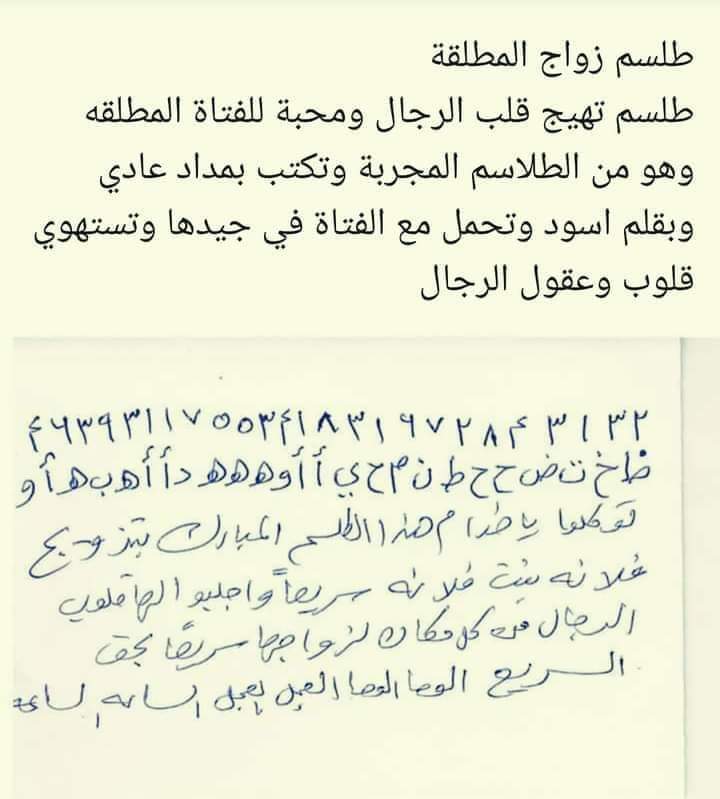 طلسم زواج المطلقة
طلسم تهيج قلب الرجال ومحبة للفتاة المطلقه
وهو من الطلاسم المجربة وتكتب بمداد عادي
وبقلم اسود وتحمل مع الفتاة في جيدها وتستهوي
قلوب وعقول الرجال
خ ت ض ح ح ط ن م ح ي أ أ و ه ه ه ه د أ أ ه ب ه أ و
توكلوا يا خدام هذا الطلسم المبارك بتزويج
فلانه بنت فلانه سريعاً واجلبو الها قلوب
الرجال من كل مكان لزواجها سريعاً بحق
السريع الوحا الوحا العجل العجل الساعه الساعه